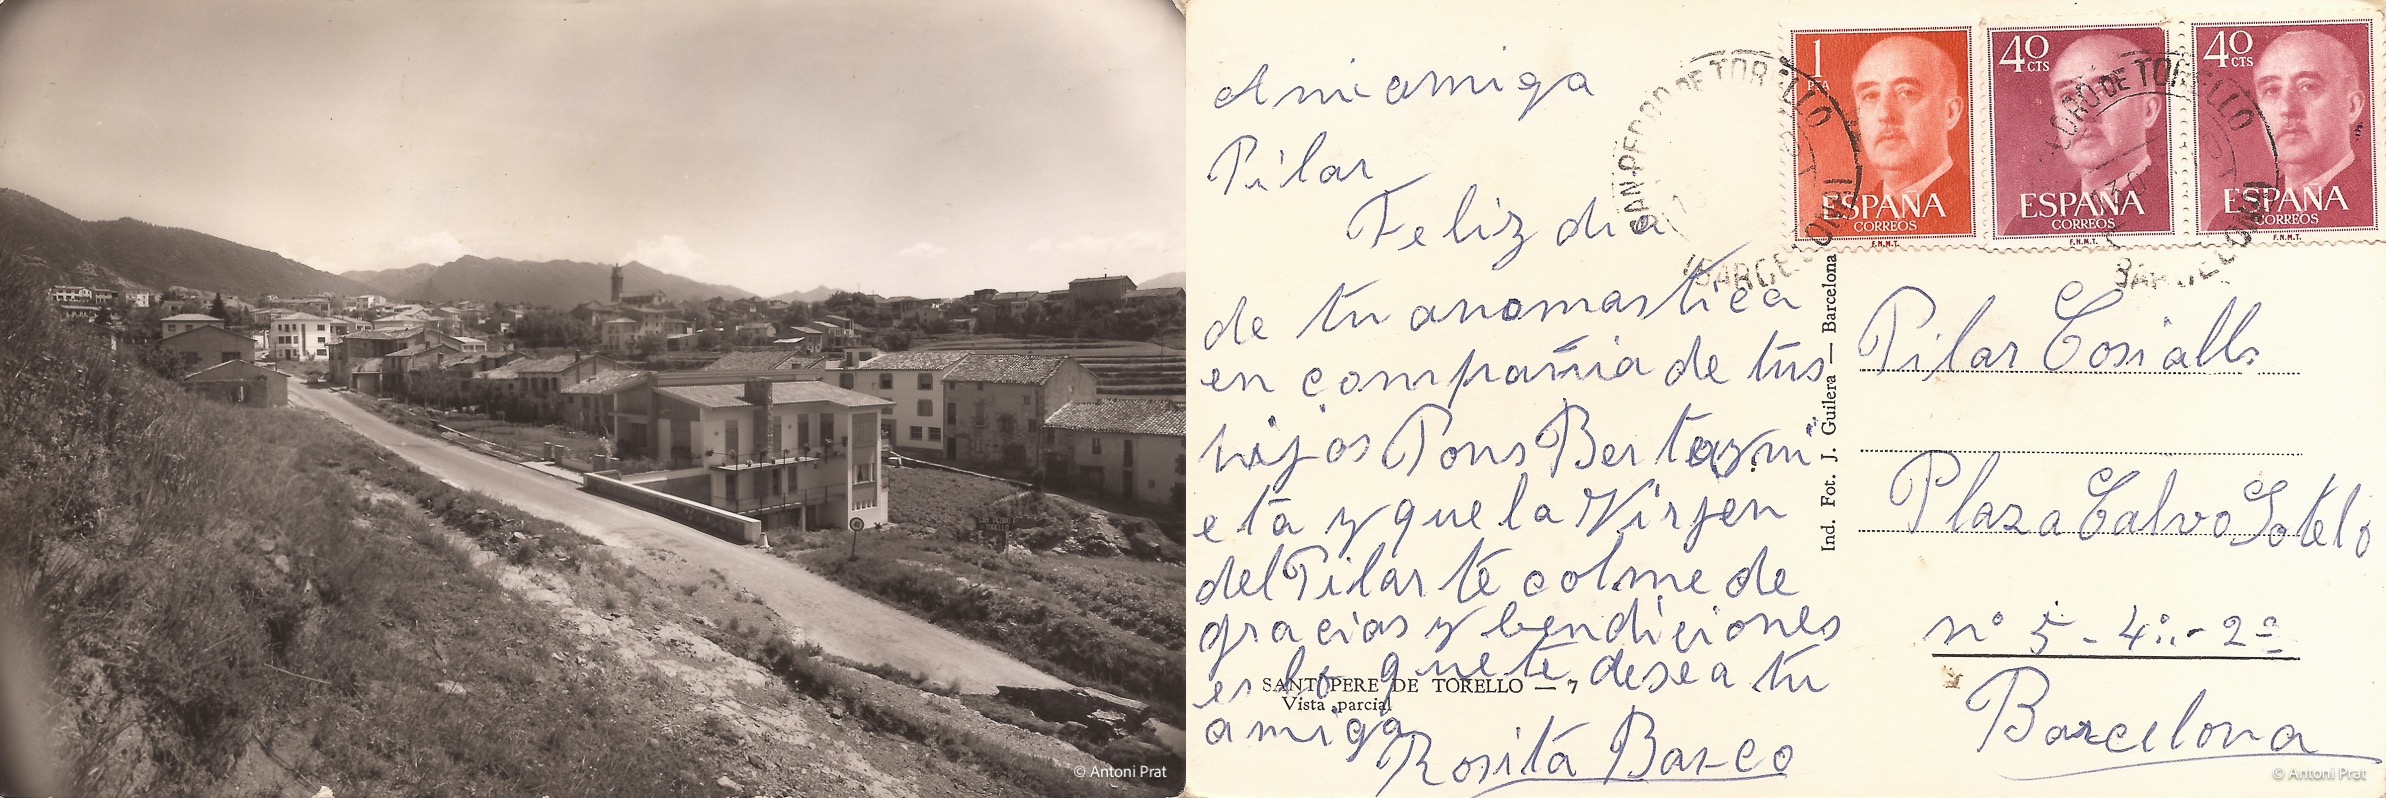 SAN PEDRO
TORELLO
40
© Antoni Prat
A mi amiga
Pilar
Feliz dia
de tu anomastica
en compañia de tus
hijos Pons Berta y ni
eta y que la Virjen
del Pilar te colme de
gracias y bendiciones
es lo que te desea tu
amiga
Rosita Basco
SANT PERE DE TORELLO — 7
Vista parcial
Ind. Fot. J. Guilera — Barcelona
SAN PEDRO DE TORELLO
(BARCELONA)
1
PTA
ESPAÑA
CORREOS
F.N.M.T.
40
CTS
ESPAÑA
CORREOS
F.N.M.T.
40
CTS
ESPAÑA
CORREOS
F.N.M.T.
DE TORELLO
BARCELONA
Pilar
Plaza Calvo Sotelo
nº 5 - 4º - 2ª
Barcelona
© Antoni Prat